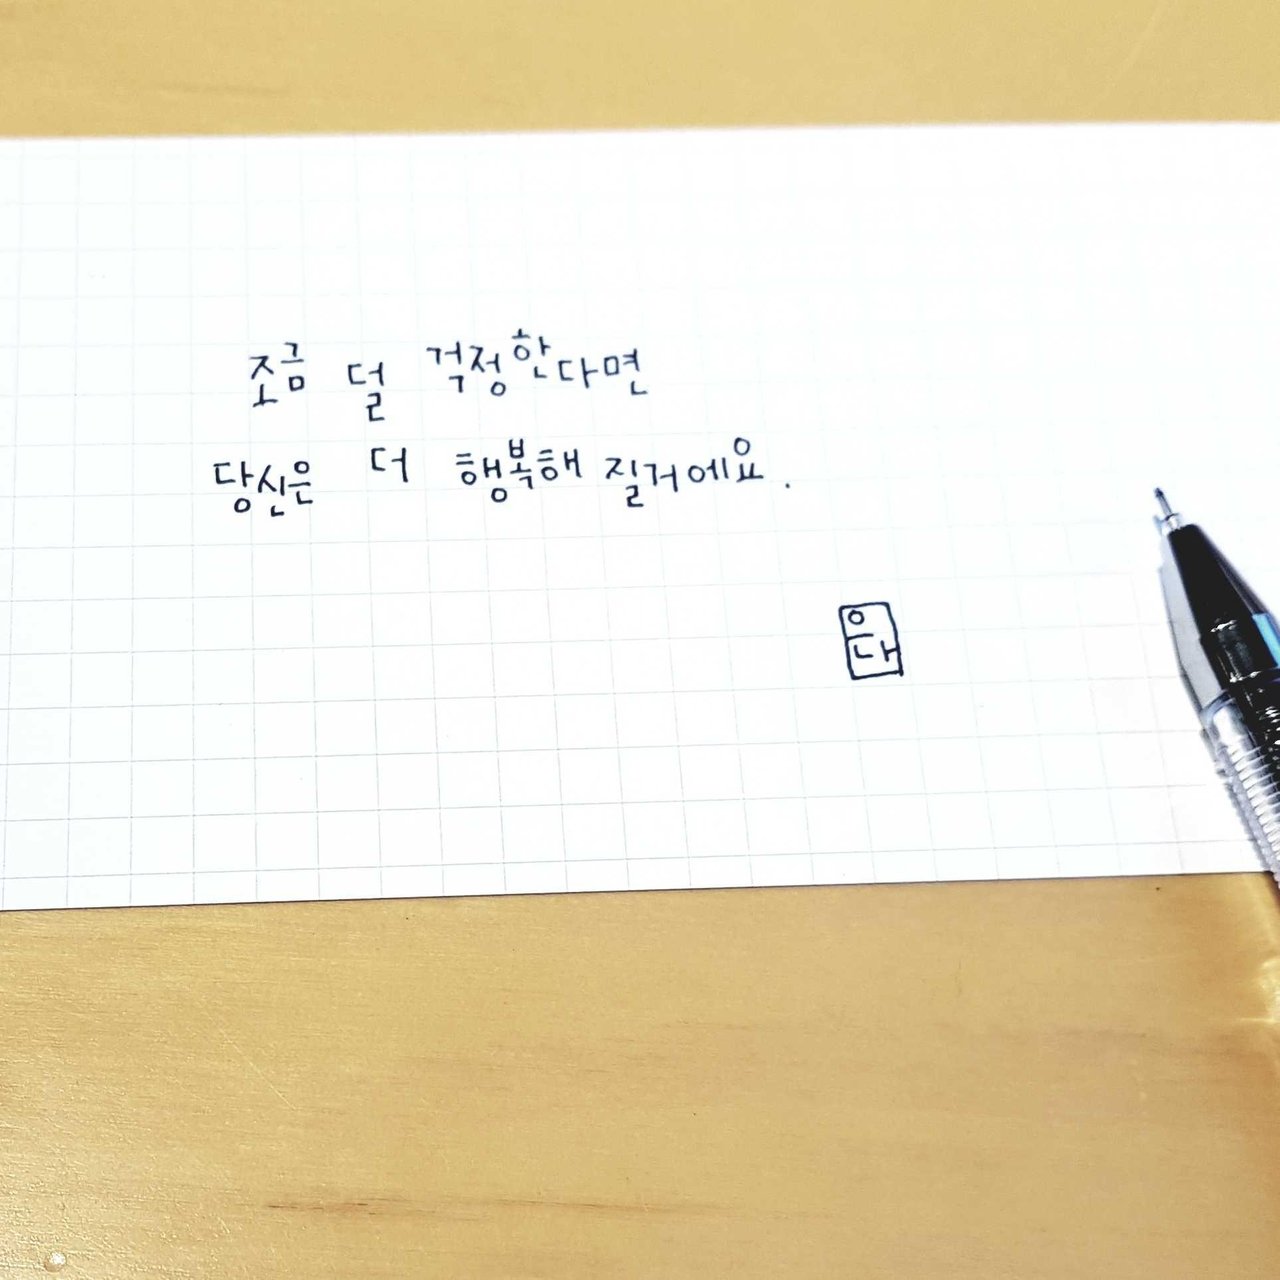 조금 덜 걱정한다면
당신은 더 행복해 질거에요.
으다